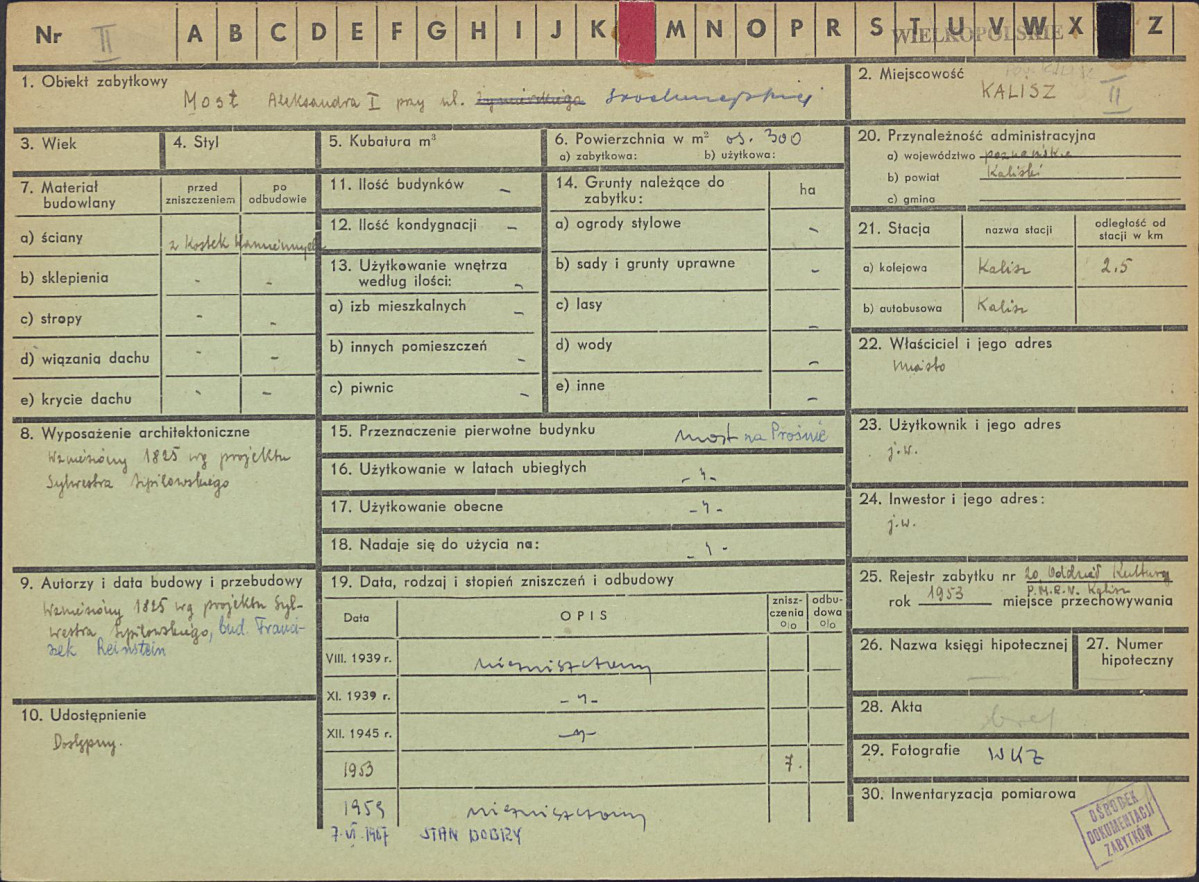 Nr II A B C D E F G H I J K M N O P R S T U V W X Z
WIELKOPOLSKIE
1. Obiekt zabytkowy
Most Aleksandra I przy ul. Śródmiejskiej
2. Miejscowość
KALISZ II
3. Wiek
4. Styl
5. Kubatura m³
6. Powierzchnia w m² ok. 300
a) zabytkowa: b) użytkowa:
20. Przynależność administracyjna
a) województwo poznańskie
b) powiat Kaliski
c) gmina
7. Materiał budowlany
przed zniszczeniem
po odbudowie
a) ściany z kostek kamiennych
b) sklepienia - -
c) stropy - -
d) wiązania dachu - -
e) krycie dachu - -
11. Ilość budynków -
12. Ilość kondygnacji -
13. Użytkowanie wnętrza
według ilości: -
a) izb mieszkalnych -
b) innych pomieszczeń -
c) piwnic -
14. Grunty należące do
zabytku:
ha
a) ogrody stylowe -
b) sady i grunty uprawne -
c) lasy -
d) wody -
e) inne -
21. Stacja
nazwa stacji
odległość od
stacji w km
a) kolejowa Kalisz 2.5
b) autobusowa Kalisz
22. Właściciel i jego adres
Miasto
8. Wyposażenie architektoniczne
Wzniesiony 1825 wg projektu
Sylwestra Szpilowskiego
15. Przeznaczenie pierwotne budynku most na Prośnie
16. Użytkowanie w latach ubiegłych -"-
17. Użytkowanie obecne -"-
18. Nadaje się do użycia na: -"-
23. Użytkownik i jego adres
j.w.
24. Inwestor i jego adres:
j.w.
9. Autorzy i data budowy i przebudowy
Wzniesiony 1825 wg projektu Syl-
westra Szpilowskiego, bud. Franci-
szek Reinstein
19. Data, rodzaj i stopień zniszczeń i odbudowy
Data
OPIS
znisz-
czenia
%
odbu-
dowa
%
VIII. 1939 r. niezniszczony
XI. 1939 r. -"-
XII. 1945 r. -"-
1953 7.
1959 niezniszczony
7.VI.1967 STAN DOBRY
10. Udostępnienie
Dostępny.
25. Rejestr zabytku nr 20, Oddział Kultury
P.M.R.N. Kalisz
rok 1953 miejsce przechowywania
26. Nazwa księgi hipotecznej
27. Numer
hipoteczny
28. Akta
brak
29. Fotografie WKZ
30. Inwentaryzacja pomiarowa
OŚRODEK
DOKUMENTACJI
ZABYTKÓW